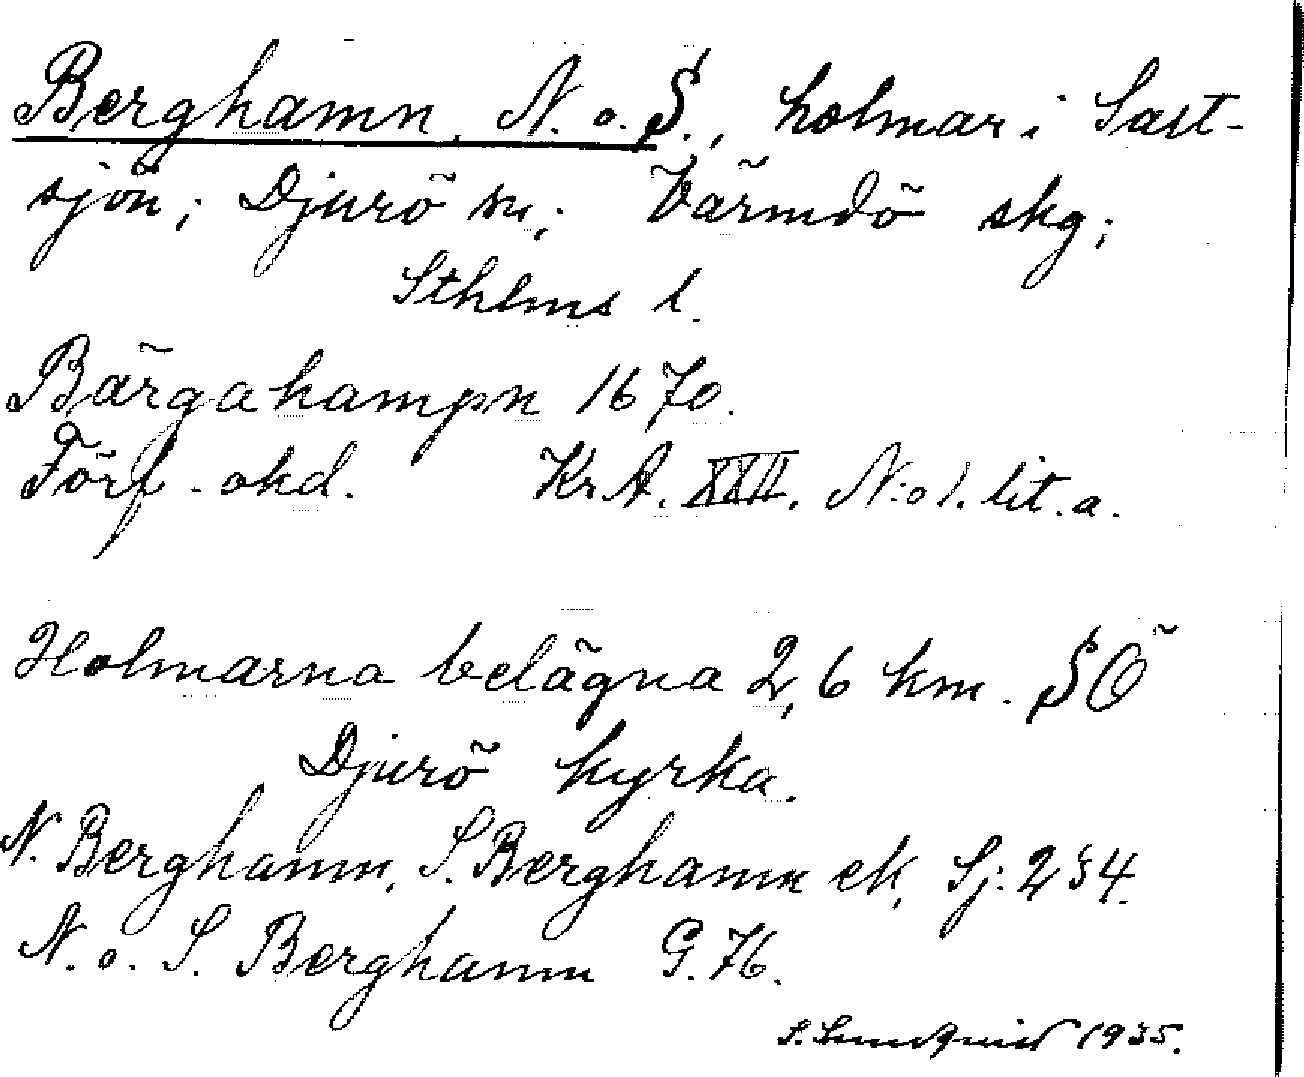 Berghamn, N. o. S., holmar i Salt-
sjön; Djurö sn; Värmdö skg;
Sthlms l.
Bärgahampn 1670.
Förf. okd. KrA. XXII. N:o 1. lit. a.
Holmarna belägna 2,6 km. SÖ
Djurö kyrka.
N. Berghamn, S. Berghamn ek, Sj: 234.
N. o. S. Berghamn G. 76.
S. Lundquist 1935.